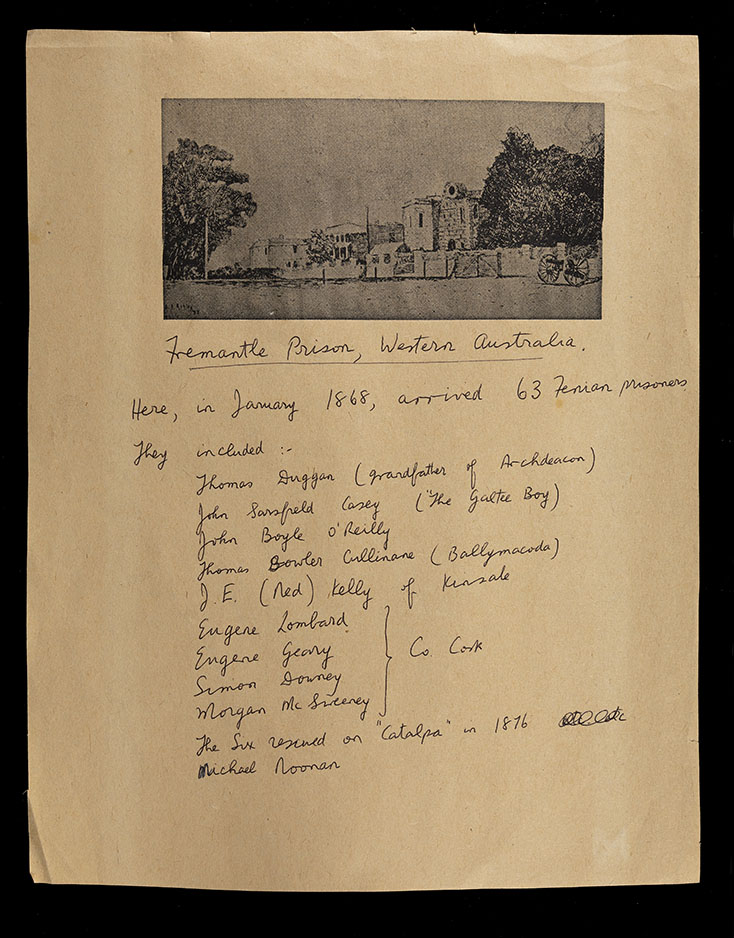 Fremantle Prison, Western Australia.
Here, in January 1868, arrived 63 Fenian prisoners
They included :-
Thomas Duggan (grandfather of Archdeacon)
John Sarsfield Casey ("The Galtee Boy)
John Boyle O'Reilly
Thomas Bowler Cullinane (Ballymacoda)
J.E. (Red) Kelly of Kinsale
Eugene Lombard
Eugene Geary
Simon Downey
Morgan McSweeney
Co. Cork
The Six rescued on "Catalpa" in 1876
Michael Noonan